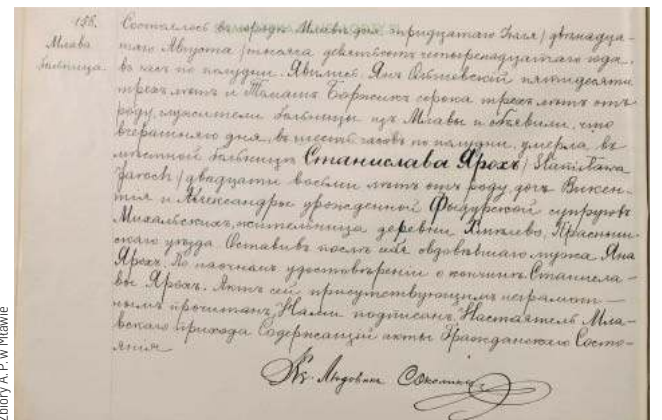 158.
Млава
больница.
Состоялось въ городѣ Млавѣ дня тридцатаго Іюля / двѣнадца-
таго Августа / тысяча девятьсотъ четырнадцатаго года,
въ часъ по полудни. Явились Янъ пятидесяти
трехъ лѣтъ и Томашъ сорока трехъ лѣтъ отъ
роду, служители больницы изъ Млавы и объявили, что
вчерашняго дня, въ шесть часовъ по полудни, умерла въ
мѣстной больницѣ Станислава Ярохъ / Stanisława
Jaroch / двадцати восьми лѣтъ отъ роду, дочь Викен-
тія и Александры урожденной супруговъ
Михальскихъ, жительница деревни Красныш-
скаго уѣзда. Оставивъ послѣ себя овдовѣвшаго мужа Яна
Ярохъ. По наочномъ удостовѣреніи о кончинѣ Станисла-
вы Ярохъ. Актъ сей присутствующимъ неграмот-
нымъ прочитанъ, Нами подписанъ. Настоятель Мла-
вскаго прихода Содержащій акты Гражданскаго Состо-
янія
Кс. Людовикъ
Zbiory A. P. w Mławie